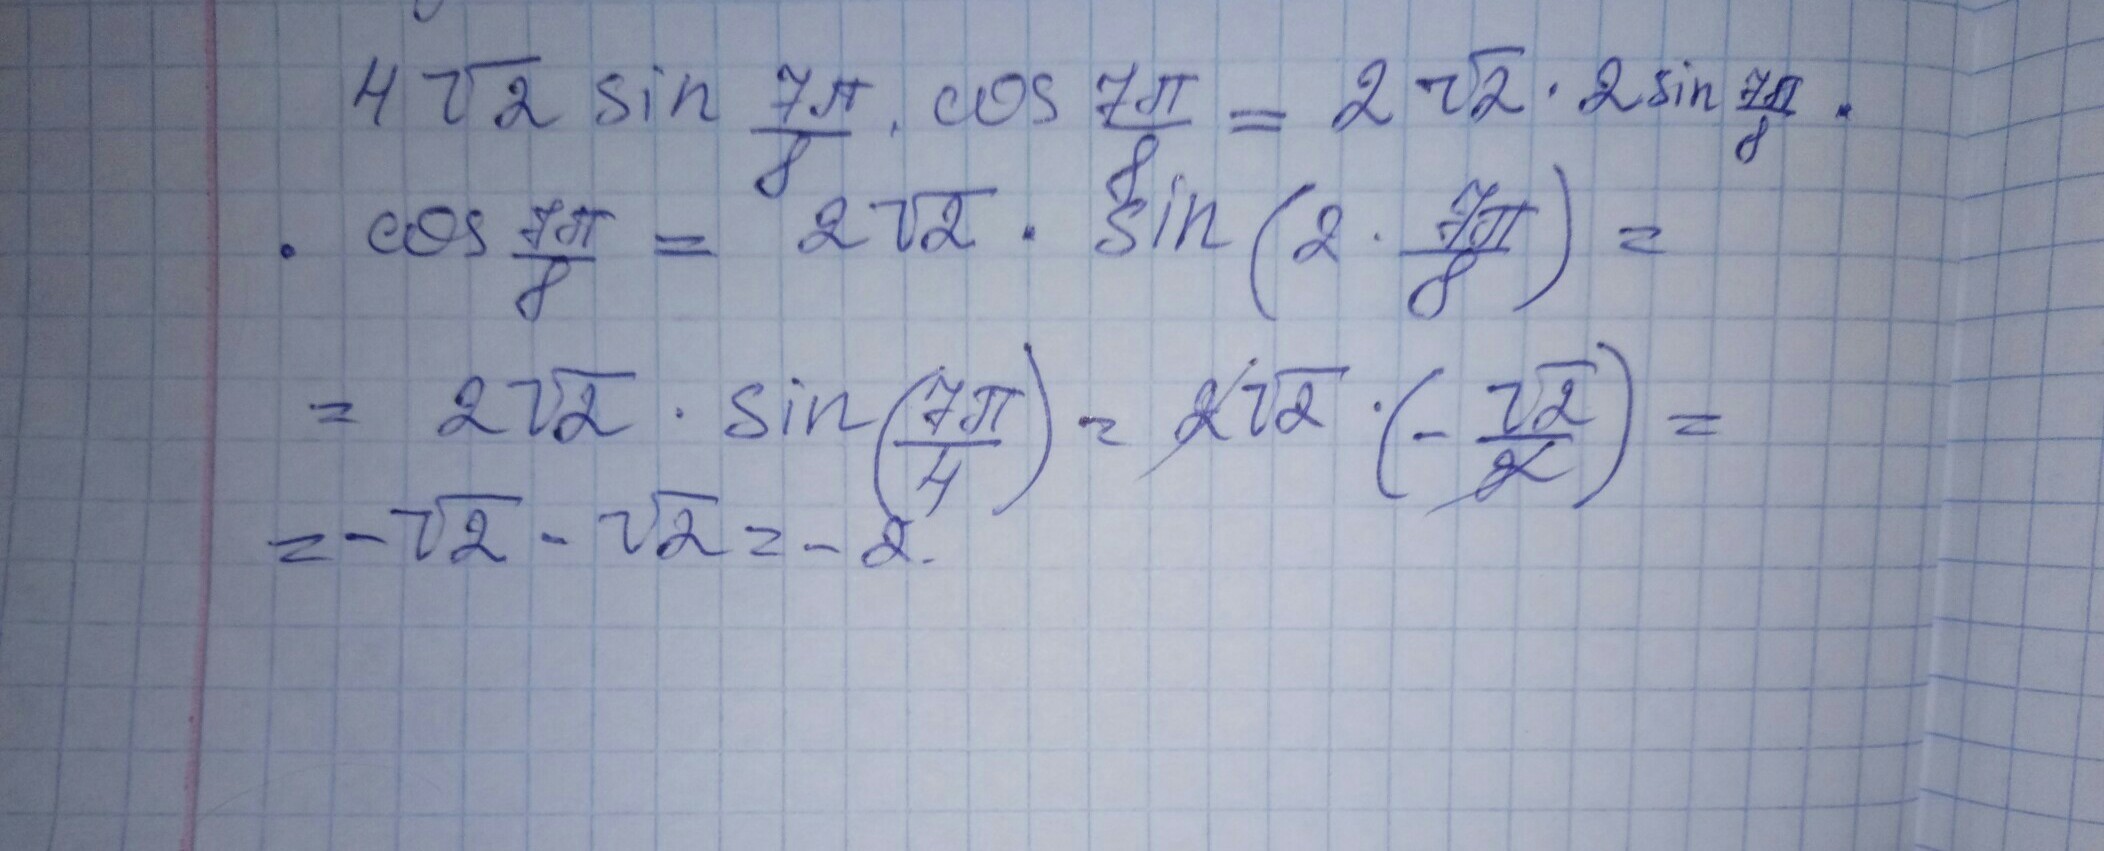 4√2 sin 7π/8 · cos 7π/8 = 2√2 · 2 sin 7π/8 ·
· cos 7π/8 = 2√2 · sin (2 · 7π/8) =
= 2√2 · sin (7π/4) = 2√2 · (- √2/2) =
= - √2 - √2 = - 2.